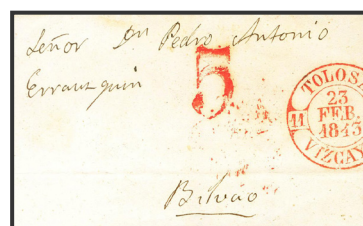 Señor Dn Pedro Antonio
Errauzquin
5
TOLOSA
23
FEB.
1843
11
VIZCAY
Bilvao